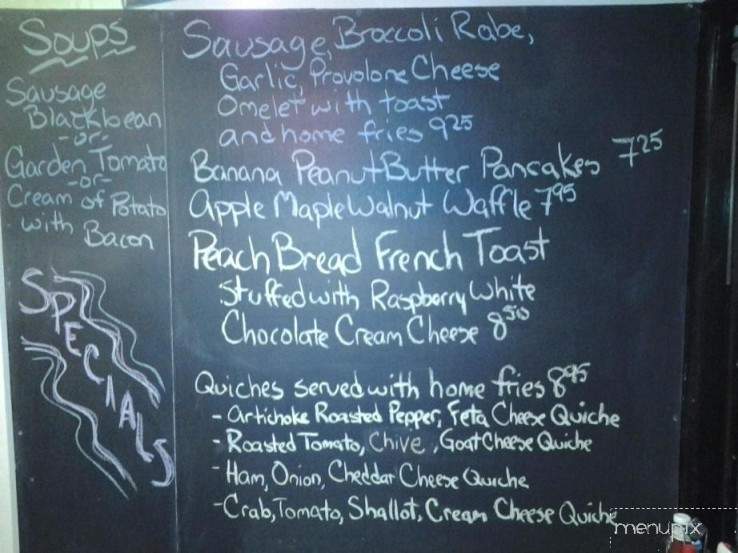 Soups
Sausage
Blackbean
-or-
Garden Tomato
-or-
Cream of Potato
with Bacon
SPECIALS
Sausage, Broccoli Rabe,
Garlic, Provolone Cheese
Omelet with toast
and home fries 9.25
Banana Peanut Butter Pancakes 7.25
Apple Maple Walnut Waffle 7.95
Peach Bread French Toast
Stuffed with Raspberry White
Chocolate Cream Cheese 8.50
Quiches served with home fries 8.95
- Artichoke Roasted Pepper, Feta Cheese Quiche
- Roasted Tomato, Chive, Goat Cheese Quiche
- Ham, Onion, Cheddar Cheese Quiche
- Crab, Tomato, Shallot, Cream Cheese Quiche
menupix